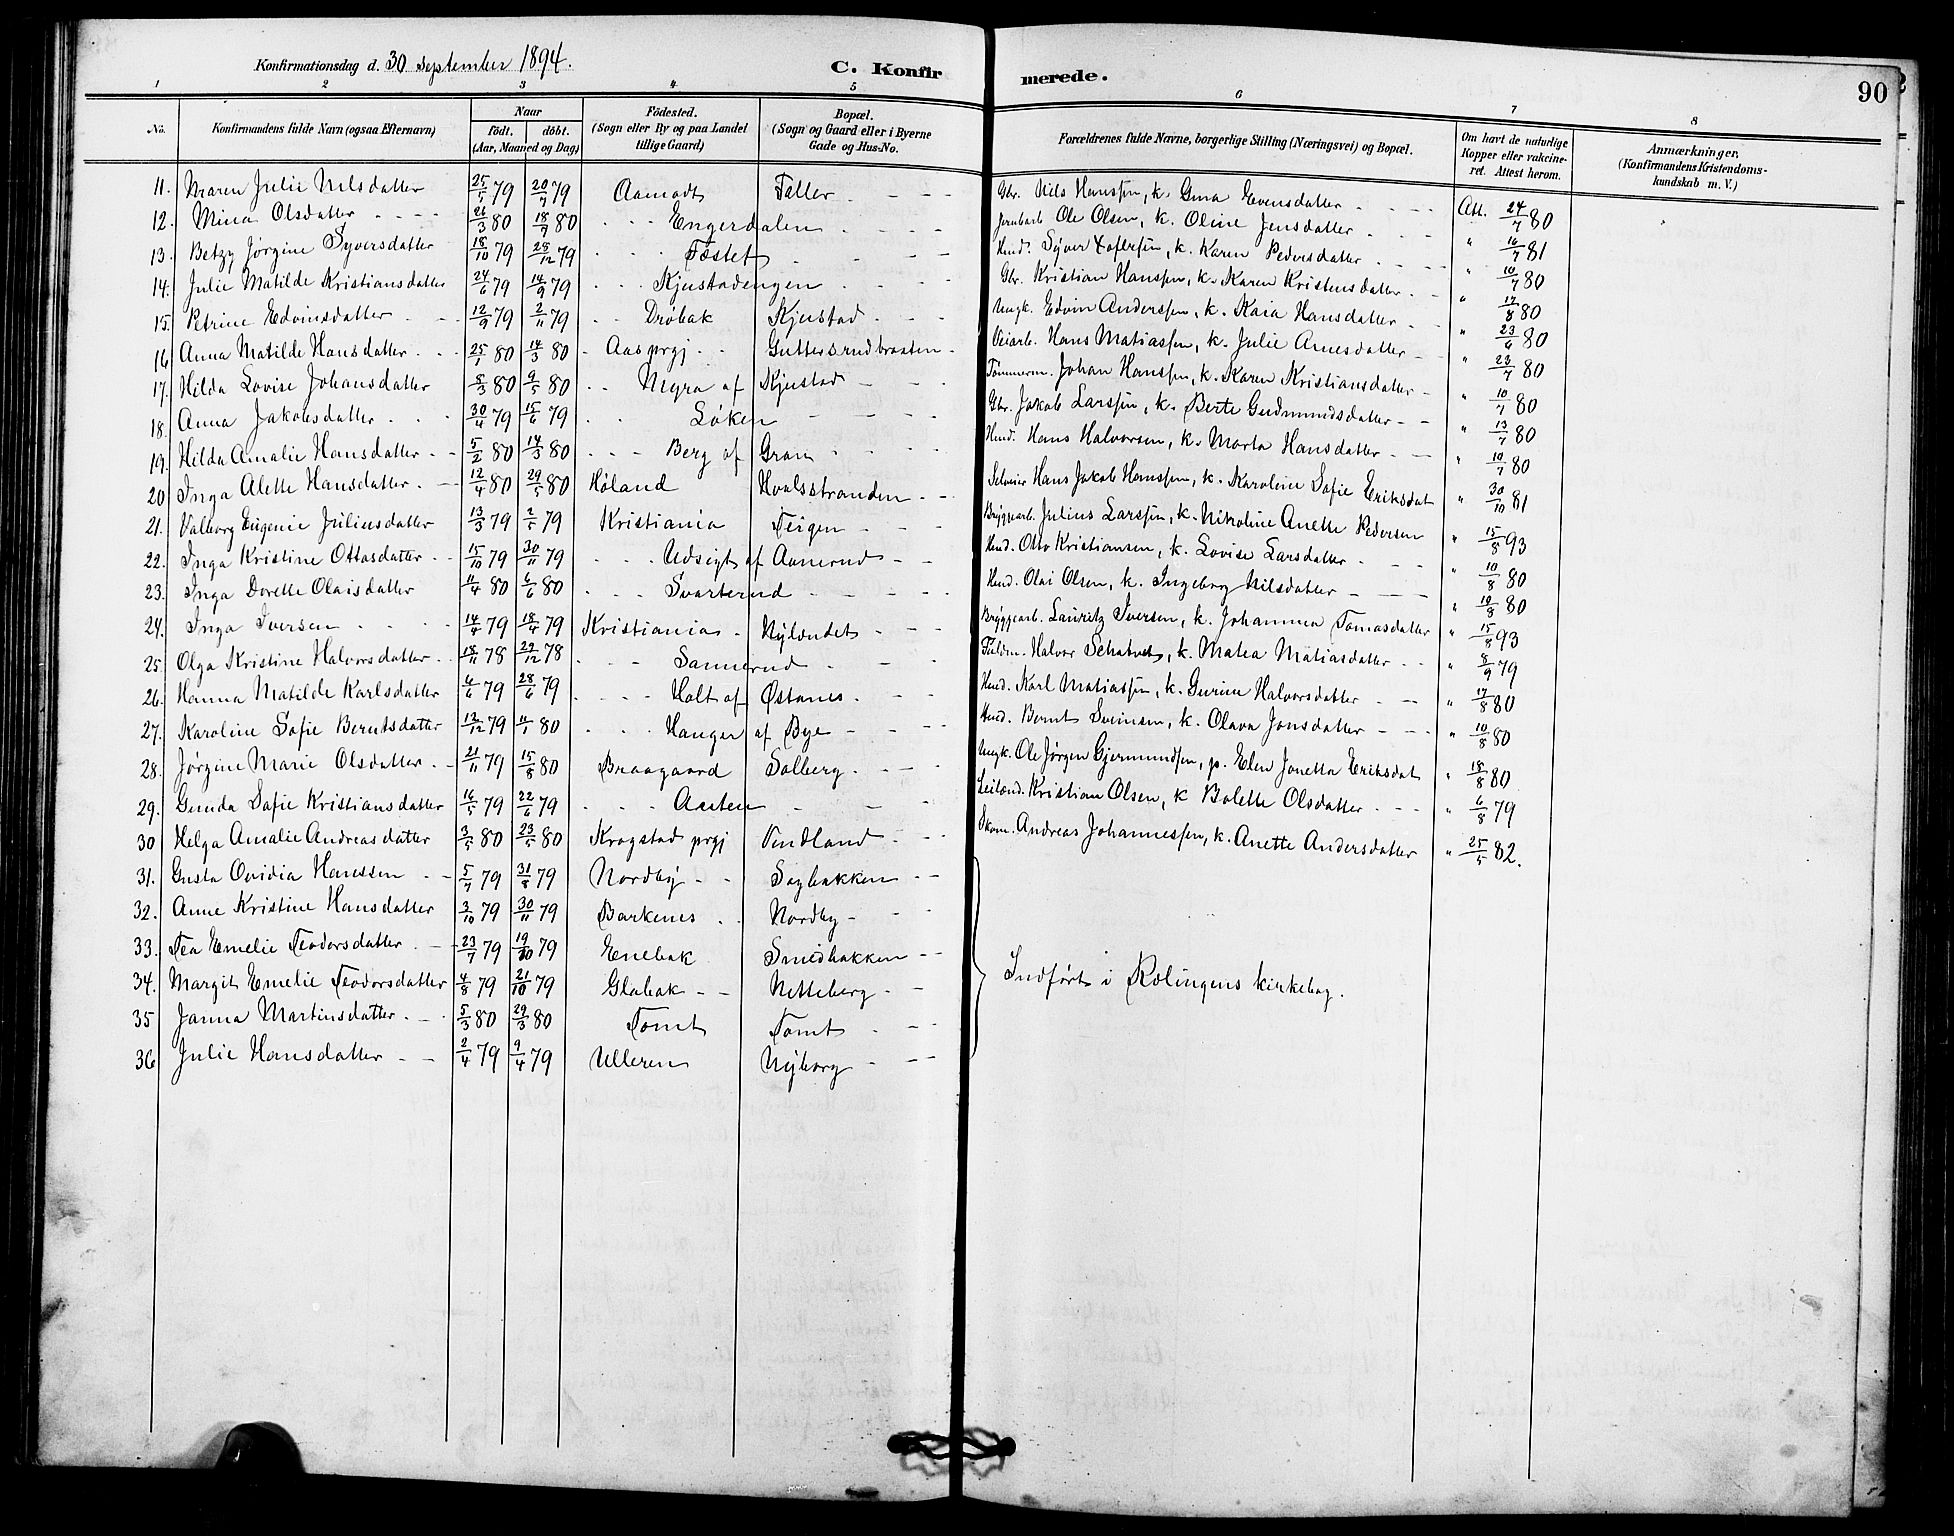 Konfirmationsdag d. 30 September 1894.
C. Konfirmerede.
90
1 2 3 4 5 6 7 8
No.
Konfirmandens fulde Navn (ogsaa Efternavn)
Naar
födt. döbt.
(Aar, Maaned og Dag)
Födested.
(Sogn eller By og paa Landet
tillige Gaard)
Bopæl.
(Sogn og Gaard eller i Byerne
Gade og Hus-No.
Forældrenes fulde Navne, borgerlige Stilling (Næringsvei) og Bopæl.
Om havt de naturlige
Kopper eller vakcine-
ret. Attest herom.
Anmærkninger.
(Konfirmandens Kristendoms-
kundskab m. V.)
11. Maren Julie Nilsdatter 25/5 79 20/7 79 Aamodt Feller Gbr. Nils Hanssen, k. Gina Evensdatter Att. 24/7 80
12. Mina Olsdatter 26/3 80 18/7 80 Engerdalen Jernbarb. Ole Olsen, k. Oline Jensdatter " 16/7 81
13. Betzy Jørgine Syversdatter 18/10 79 28/12 79 Tostet Husd. Syver Xofersen, k. Karen Pedersdatter " 10/7 80
14. Julie Matilde Kristiansdatter 24/6 79 14/9 79 Kjustadengen Gbr. Kristian Hanssen, k. Karen Kristensdatter " 17/8 80
15. Petrine Edvinsdatter 12/9 79 2/11 79 Drøbak Kjustad Ungk. Edvin Anderssen, k. Kaia Hansdatter " 23/6 80
16 Anna Matilde Hansdatter 25/1 80 14/3 80 Aas prgj Guttersrudbraaten Veiarb. Hans Matiassen, k. Julie Arnesdatter " 23/7 80
17. Hilda Lovise Johansdatter 8/3 80 9/5 80 Myra af Kjustad Tømmerm. Johan Hanssen, k. Karen Kristiansdatter " 10/7 80
18. Anna Jakobsdatter 30/4 79 15/6 79 Løken Gbr. Jakob Larssen, k. Berte Gudmundsdatter " 13/7 80
19. Hilda Amalie Hansdatter 5/2 80 14/3 80 Berg af Gran Husd. Hans Halvorsen, k. Marta Hansdatter " 10/7 80
20 Inga Alette Hansdatter 12/4 80 29/5 80 Høland Hvalsstranden Selveier Hans Jakob Hanssen, k. Karoline Sofie Eriksdat " 30/10 81
21. Valborg Eugenie Juliusdatter 13/3 79 2/5 79 Kristiania Teigen Bryggearb. Julius Larssen, k. Nikoline Anette Pedersen " 15/8 93
22. Inga Kristine Ottosdatter 15/10 79 30/11 79 Udsigt af Aanerud Husd. Otto Kristiansen, k. Lovise Larsdatter " 10/8 80
23. Inga Dorette Olaisdatter 11/4 80 6/6 80 Svarterud Husd. Olai Olsen, k. Ingeborg Nilsdatter " 10/8 80
24. Inga Iversen 14/4 79 18/4 79 Kristiania Nylændet Bryggearb. Lauritz Iversen, k. Johanna Tomasdatter " 15/8 93
25. Olga Kristine Halvorsdatter 18/11 78 29/12 78 Sannerud Halvor Schatvet, k. Matea Matiasdatter " 8/9 79
26. Hanna Matilde Karlsdatter 6/6 79 28/6 79 Holt af Østanes Husd. Karl Matiassen, k. Gurine Halvorsdatter " 17/8 80
27. Karoline Sofie Berntsdatter 12/12 79 11/1 80 Hanger af Bye Husd. Bernt Sveinsen, k. Olava Jonsdatter " 10/8 80
28. Jørgine Marie Olsdatter 21/11 79 15/8 80 Braagaard Solberg Ungk. Ole Jørgen Gjermundsen, p. Elen Jonetta Eriksdat " 18/8 80
29. Gunda Sofie Kristiansdatter 16/5 79 22/6 79 Aasten Leilænd. Kristian Olsen, k Bolette Olsdatter " 6/8 79
30 Helga Amalie Andreasdatter 3/5 80 23/5 80 Kragstad prgj Vindland Skom. Andreas Johannessen, k. Anette Andersdatter " 25/5 82.
31. Gusta Ovidia Hanssen 5/7 79 31/8 79 Nordby Sagbakken
32. Anne Kristine Hansdatter 3/10 79 30/11 79 Barkenes Nordby
33. Tea Emelie Teodorsdatter 23/7 79 19/10 79 Enebak Smedbakken
34. Margit Emelie Teodorsdatter 4/8 79 21/10 79 Glabak Netteberg
Indført i Rælingens kirkebog.
35 Janna Martinsdatter 5/3 80 29/3 80 Tomt Tomt
36 Julie Hansdatter 2/4 79 9/4 79 Ulleren Nyborg